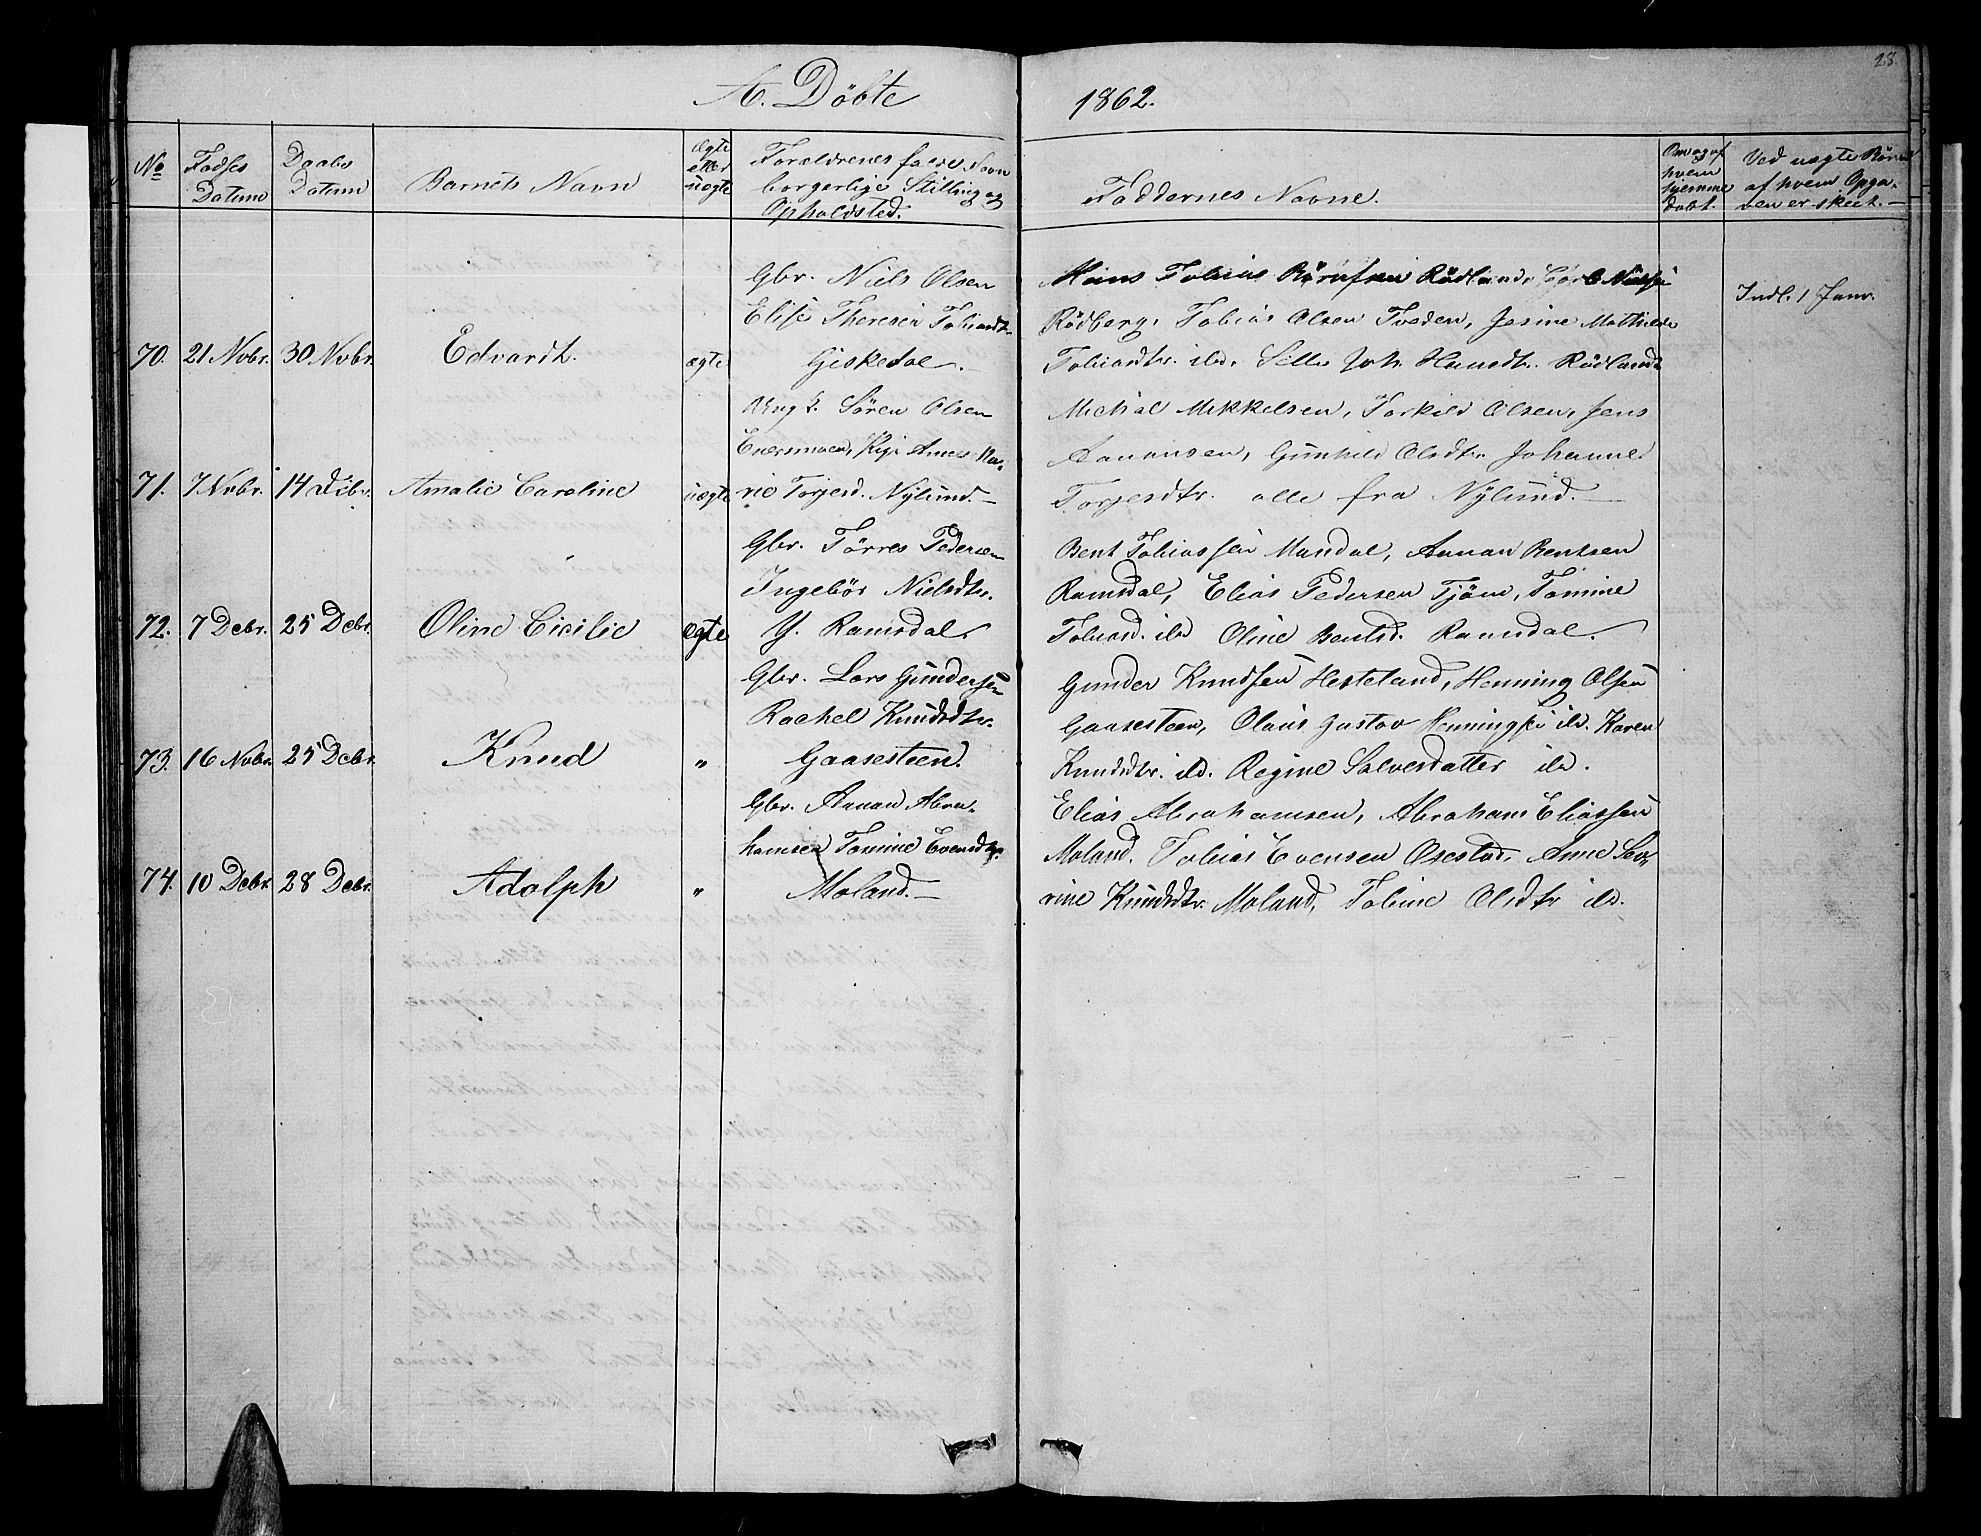 28.
A. Döbte 1862.
No
Fødses Datum
Daabs Datum
Barnets Navn
ægte eller uægte
Forældrenes fulde Navn
borgerlige Stilling og
Opholdsted.
Faddernes Navne.
Om og af hvem hjemmedøbt.
Ved uægte Börn af hvem Opgaven er skeet.
Gbr. Niels Olsen
Elise Theresia Tobiasdtr.
70. 21 Nvbr. 30 Nvbr. Edvardt. ægte Giskedal.
Hans Tobias Rödland,
Rödberg, Tobias Olsen Tveden, Jesine Mathilde
Tobiasdtr. ibd. Sille Joh. Hansdtr. Rödland
Indl. 1 Janr.
Ungk. Sören Olsen
Pige Anne Ma-
71. 7 Nvbr. 14 Dcbr. Amalie Caroline uægte rie Torjesd. Nylund.
Michal Mikkelsen, Torkild Olsen, Jens
Aanonsen, Gunhild Olsdtr. Johanne
Torjesdtr. alle fra Nylund.
Gbr. Törres Pedersen
Ingebör Nielsdtr.
72. 7 Decbr. 25 Decbr. Oline Cicilie ægte Y. Ramsdal
Bent Tobiassen Mandal, Aanan Bentsen
Ramsdal, Elias Pedersen Tjöm, Tomine
Tobiasd. ibd Oline Bentsd. Ramsdal.
Gbr. Lars Gundersen
Rachel Knudsdtr.
73. 16 Nvbr. 25 Decbr. Knud " Gaasesteen.
Gunder Knudsen Hesteland, Henning Olsen
Gaasesteen, Olaus Gustav Henningsen ibd. Karen
Knudsdtr. ibd. Regine Salvesdatter ibd.
Gbr. Aanan Abra-
hamsen Tomine Evensdtr.
74. 10 Decbr. 28 Decbr. Adolph " Moland.
Elias Abrahamsen, Abraham Eliassen
Moland. Tobias Evensen Osestad, Anne Sev-
rine Knudsdtr. Moland, Tobine Olsdtr ibd.